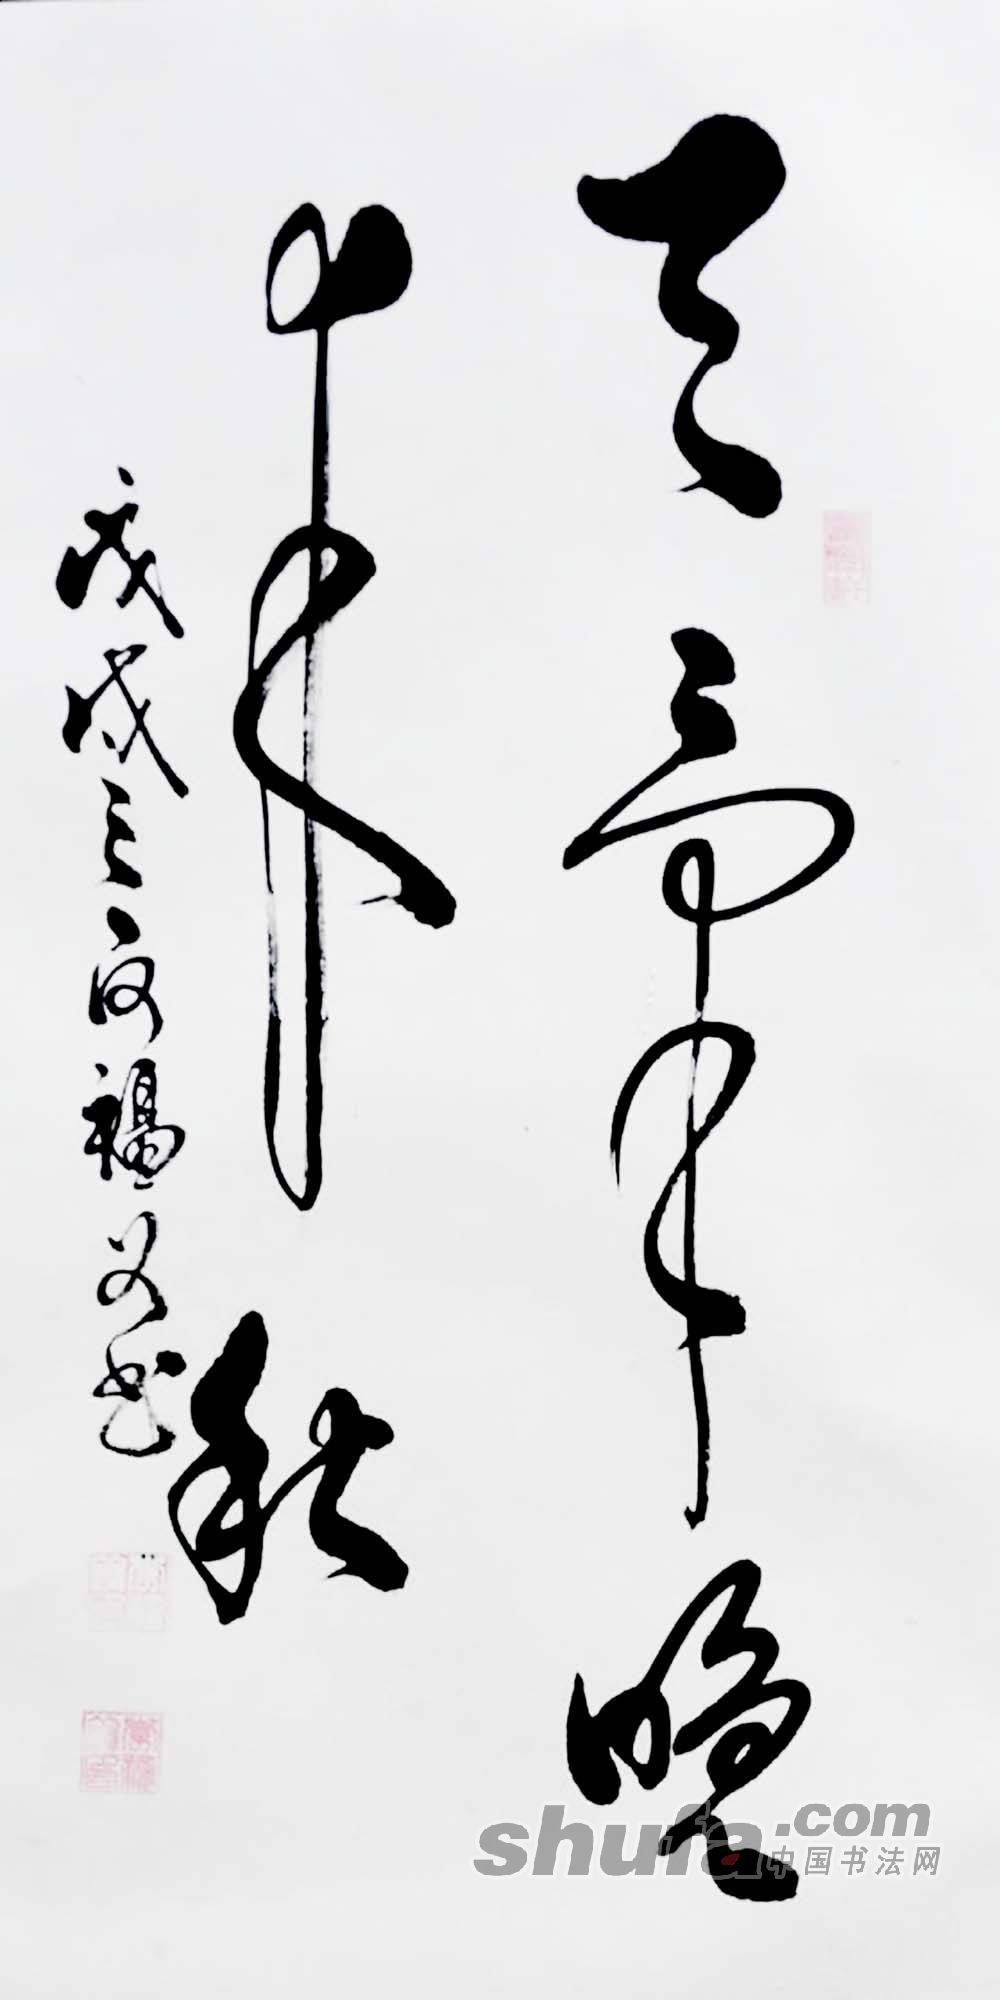 天气晚来秋
戊戌之夏福义书
shufa.com
中国书法网